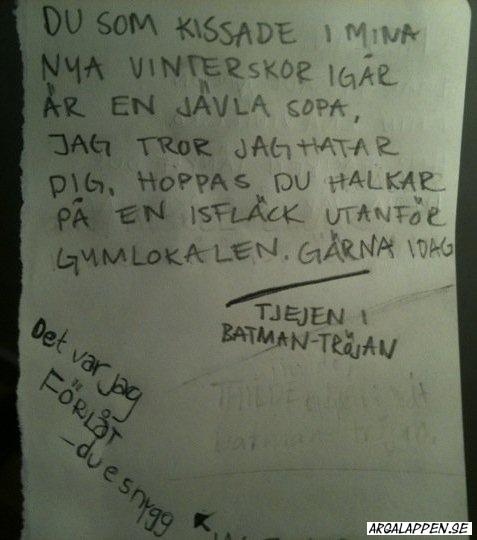 DU SOM KISSADE I MINA
NYA VINTERSKOR IGÅR
ÄR EN JÄVLA SOPA.
JAG TROR JAG HATAR
DIG. HOPPAS DU HALKAR
PÅ EN ISFLÄCK UTANFÖR
GYMLOKALEN. GÄRNA IDAG
TJEJEN I
BATMAN-TRÖJAN
Det var jag
FÖRLÅT
– du e snygg
ARGALAPPEN.SE